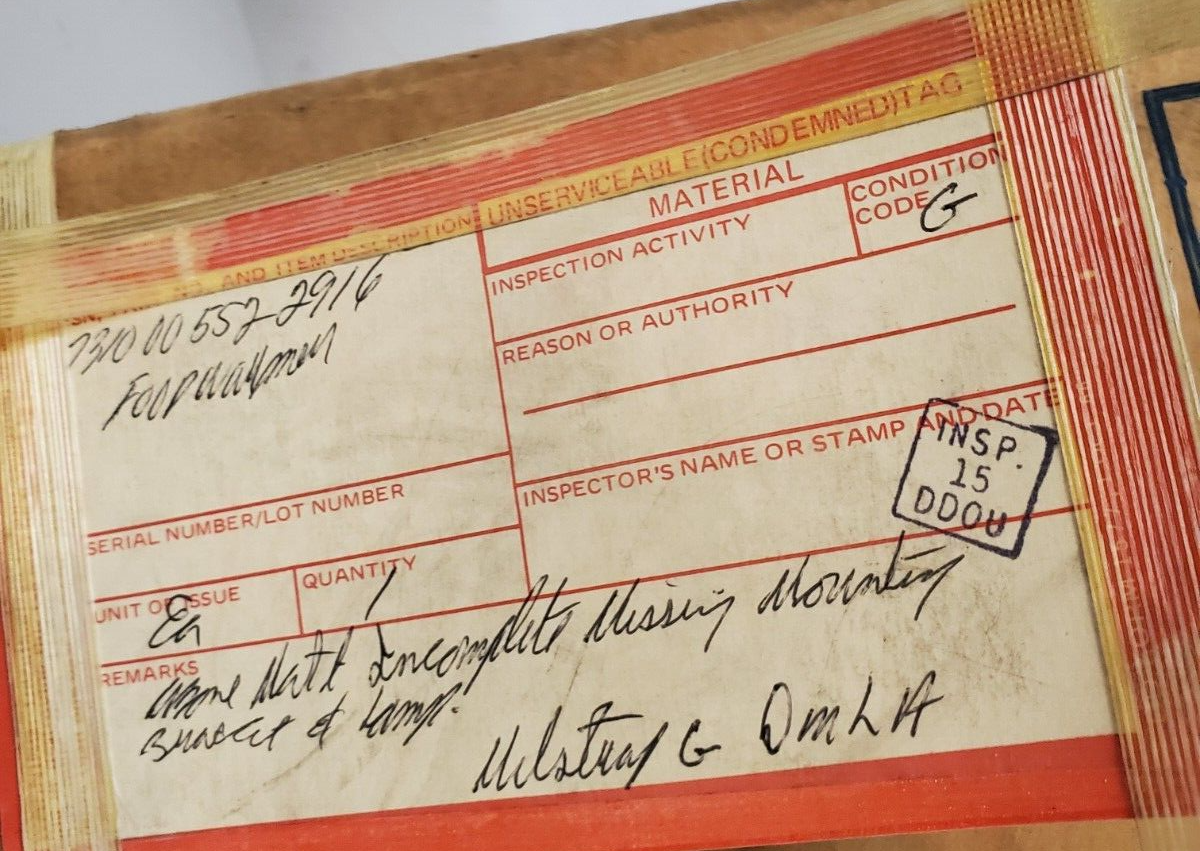 UNSERVICEABLE (CONDEMNED) TAG
MATERIAL
AND ITEM DESCRIPTION
7310 00 552-2916
INSPECTION ACTIVITY
CONDITION
CODE G
REASON OR AUTHORITY
SERIAL NUMBER/LOT NUMBER
INSPECTOR'S NAME OR STAMP AND DATE
INSP.
15
DDOU
UNIT OF ISSUE
Ea
QUANTITY
1
REMARKS
Above Mat'l Incomplete Missing Mounting
Bracket & Lamp.
Milstrap G DMLA